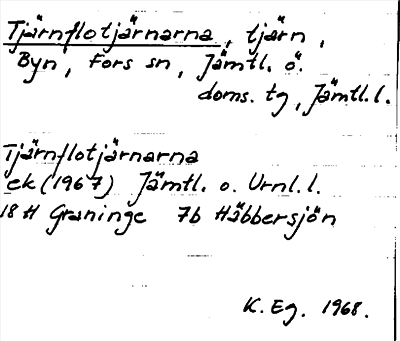 Tjärnflotjärnarna, tjärn,
Byn, Fors sn, Jämtl. ö.
doms. tg, Jämtl.l.
Tjärnflotjärnarna
ek (1967) Jämtl. o. Vrnl.l.
18 H Graninge 7b Häbbersjön
K. Eg. 1968.